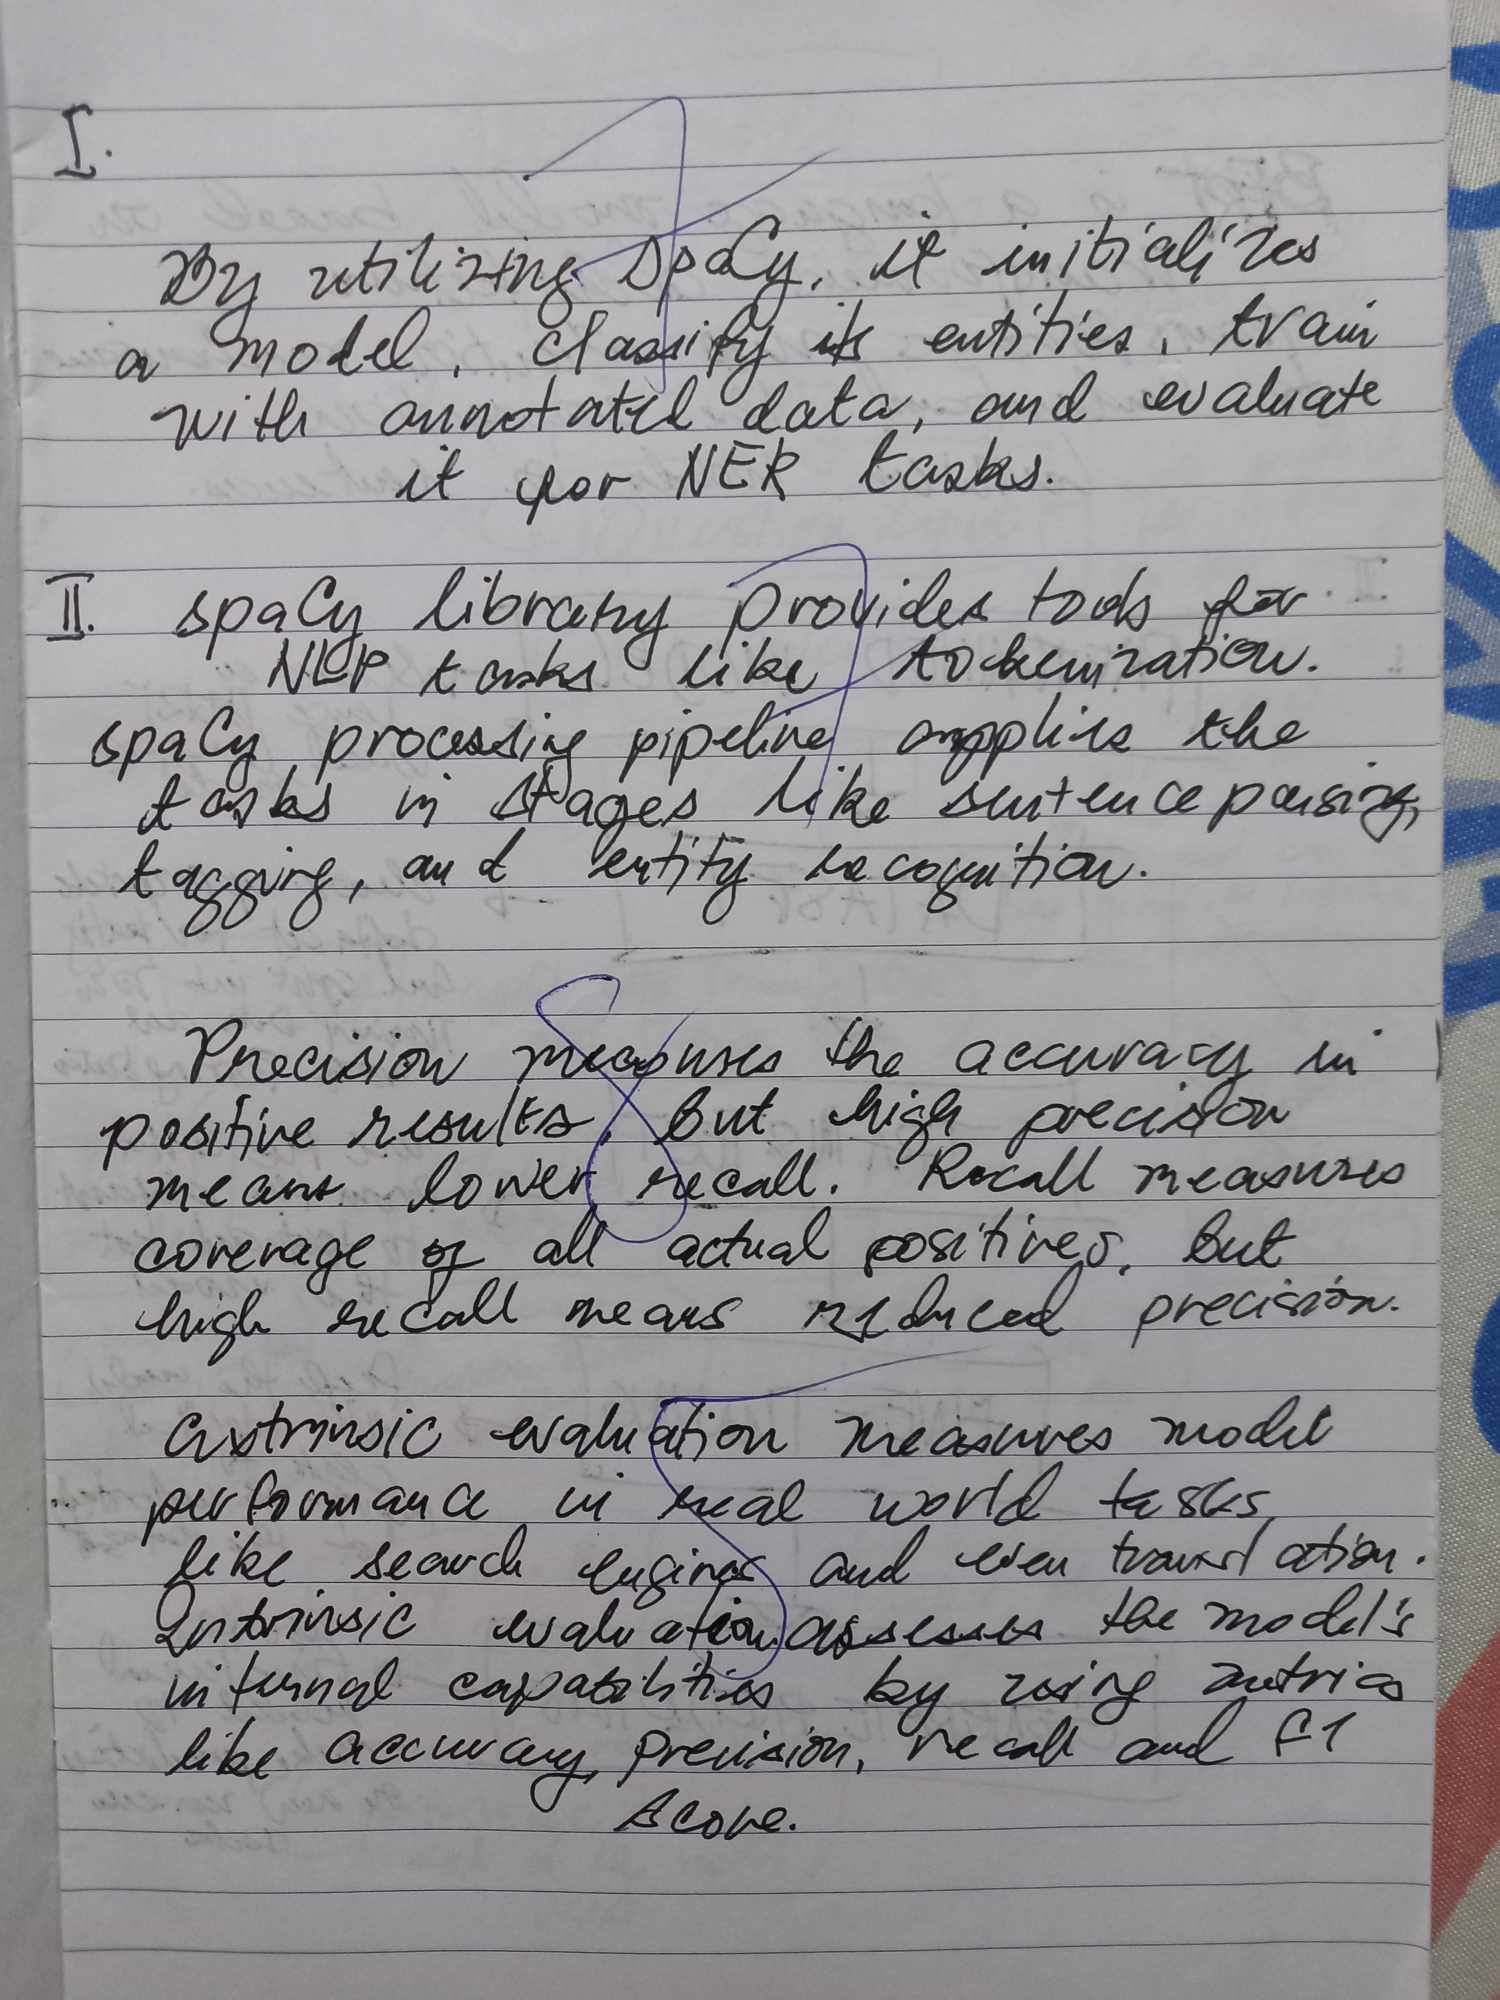 I.
By utilizing spaCy, it initializes
a model, classify its entities, train
with annotated data, and evaluate
it for NER tasks.
II. spaCy library provides tools for
NLP tasks like tokenization.
spaCy processing pipeline applies the
tasks in stages like sentence parsing,
tagging, and entity recognition.
Precision measures the accuracy in
positive results, but high precision
means lower recall. Recall measures
coverage of all actual positives, but
high recall means reduced precision.
Extrinsic evaluation measures model
performance in real world tasks
like search engines and even translation.
Intrinsic evaluation assesses the model's
internal capabilities by using metrics
like accuracy, precision, recall and F1
score.